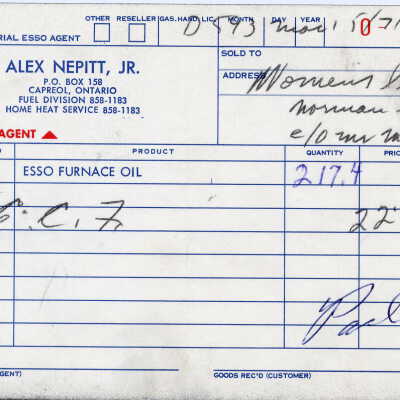 OTHER RESELLER GAS.HAND.LIC. MONTH DAY YEAR
D 593 Mar 5/71 0
RIAL ESSO AGENT
SOLD TO
ALEX NEPITT, JR.
P.O. BOX 158
CAPREOL, ONTARIO
FUEL DIVISION 858-1183
HOME HEAT SERVICE 858-1183
ADDRESS Womens
norman
c/o mr
AGENT
PRODUCT QUANTITY PRI
ESSO FURNACE OIL 217.4
C. F. 22
Pa
GENT) GOODS REC'D (CUSTOMER)